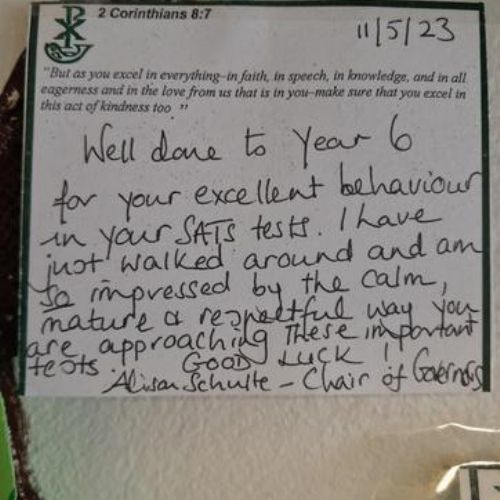 2 Corinthians 8:7
11/5/23
"But as you excel in everything–in faith, in speech, in knowledge, and in all
eagerness and in the love from us that is in you–make sure that you excel in
this act of kindness too "
Well done to Year 6
for your excellent behaviour
in your SATs tests. I have
just walked around and am
so impressed by the calm,
mature & respectful way you
are approaching these important
tests. GOOD LUCK !
Alison Schulte – Chair of Governors